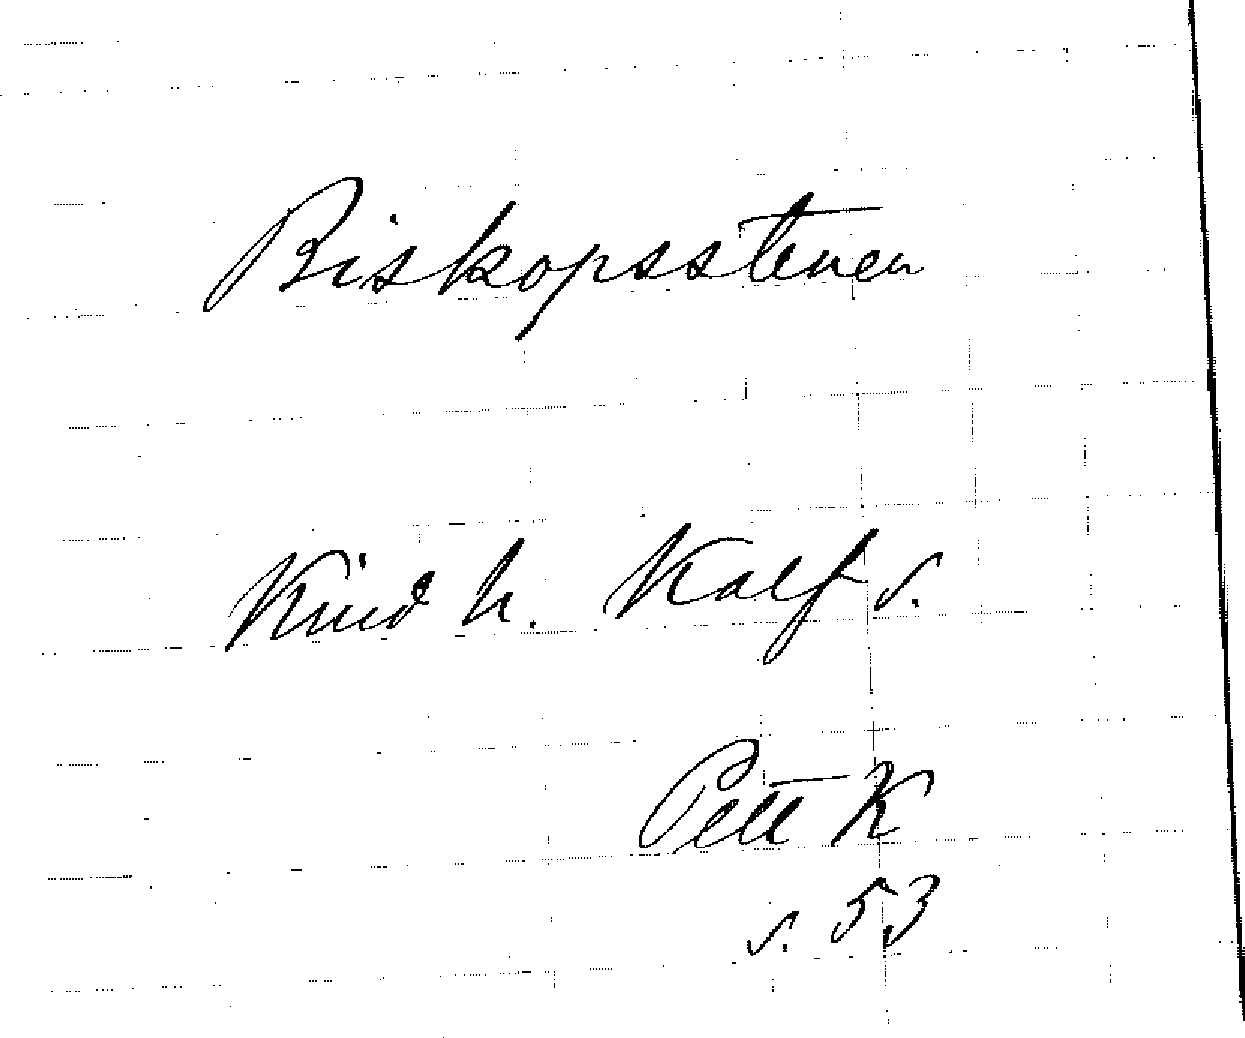 Biskopsstenen
Kind h. Kalf s.
Pett K
s. 53